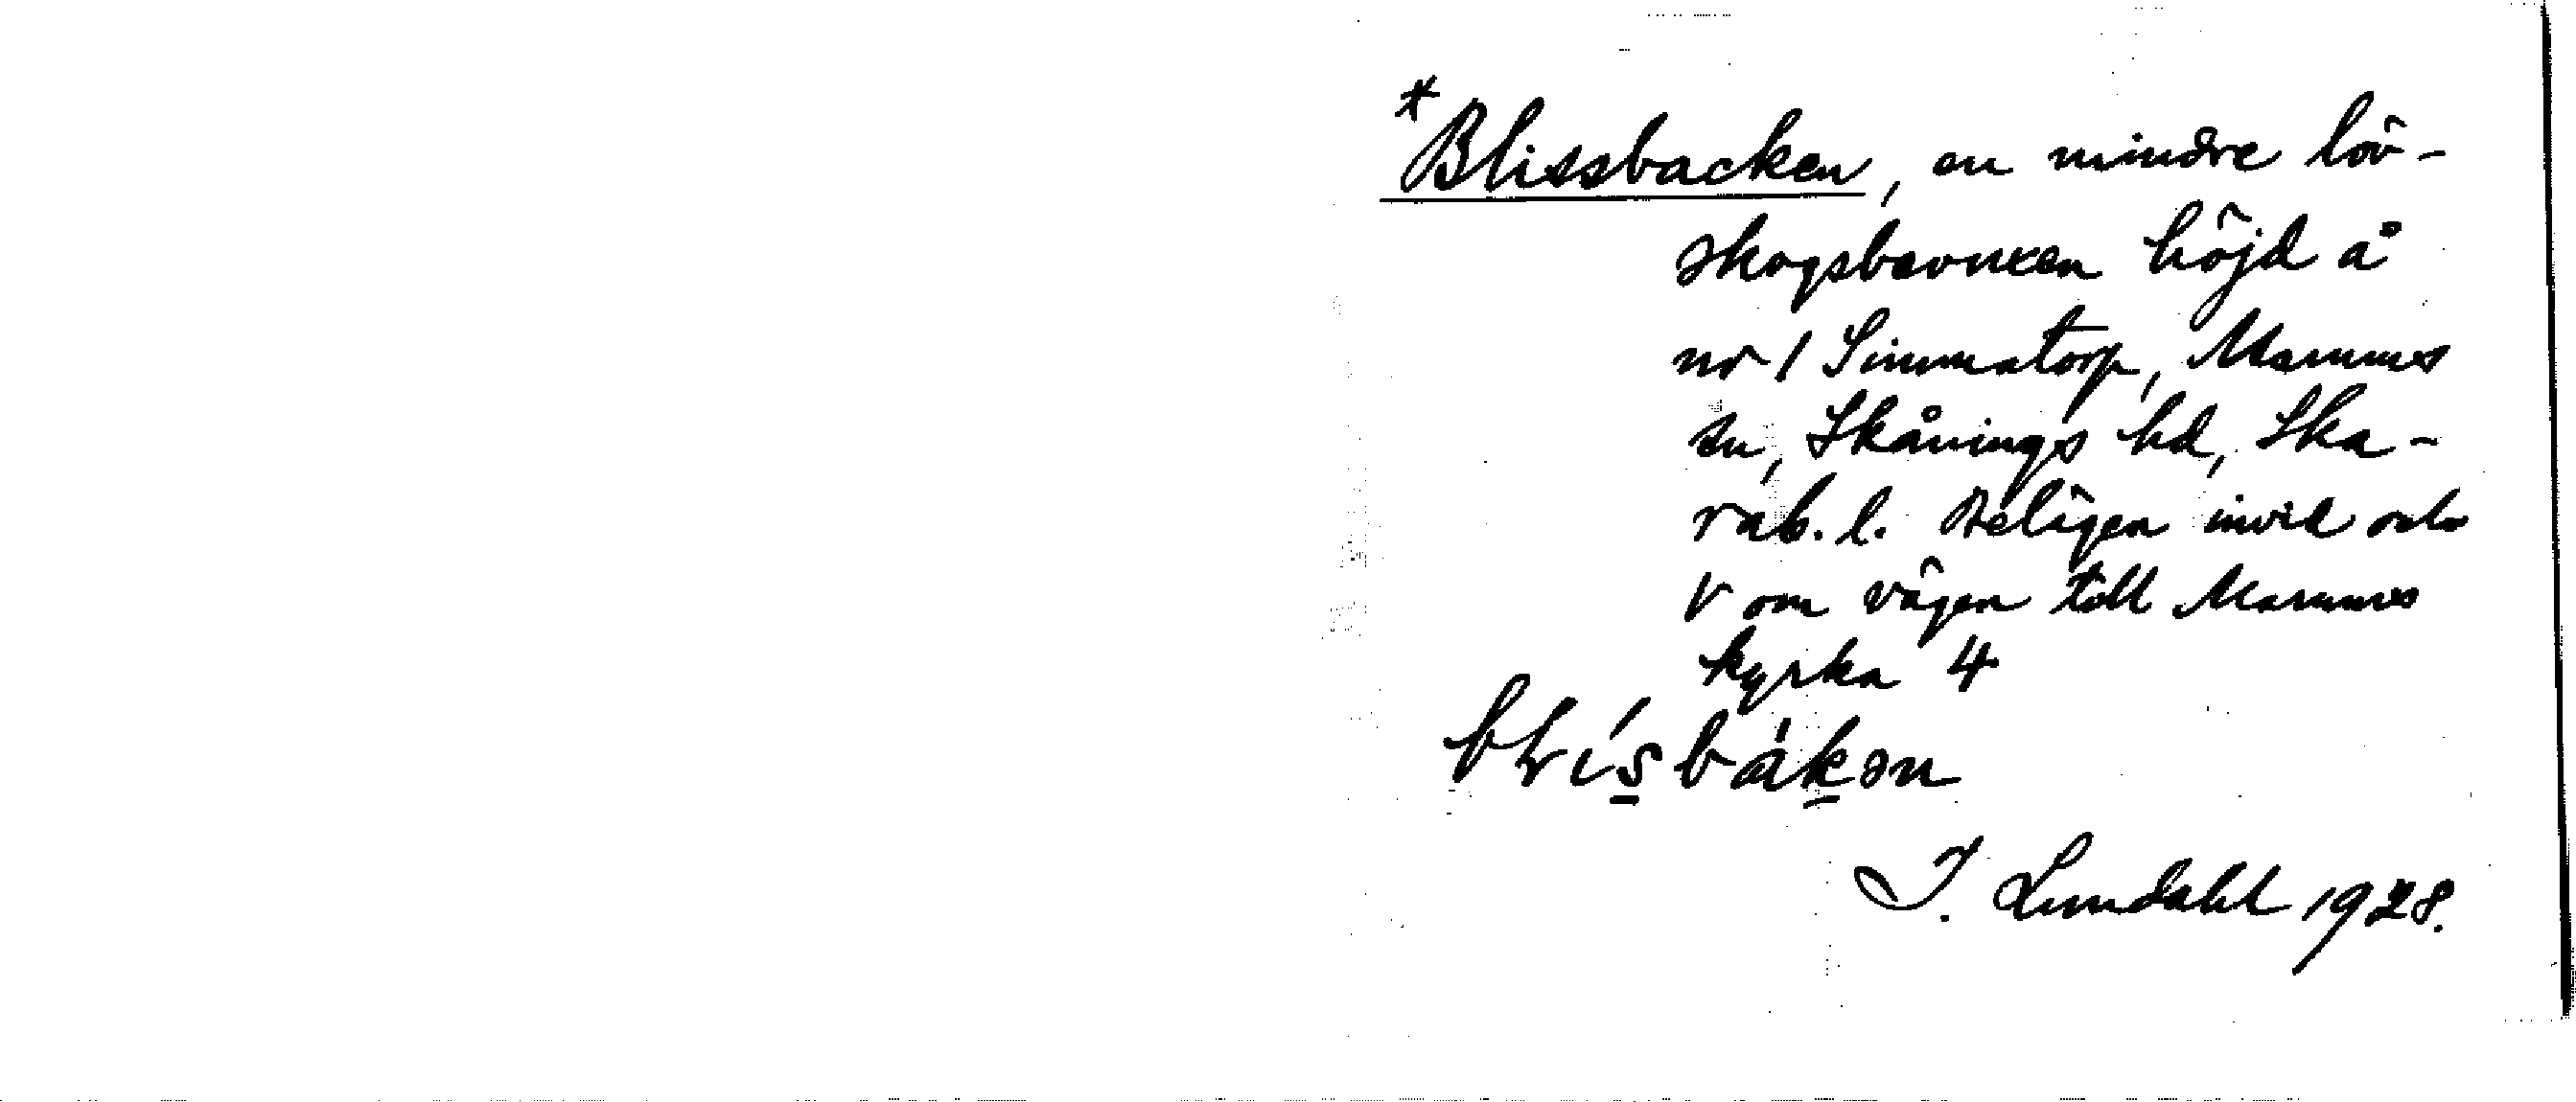 *Blissbacken, en mindre löv-
skogsbevuxen höjd å
nr 1 Simmatorp, Marums
sn, Skånings hd, Ska-
rab. l. Belägen invid och
V om vägen till Marums
kyrka 4
I. Lundahl 1928.